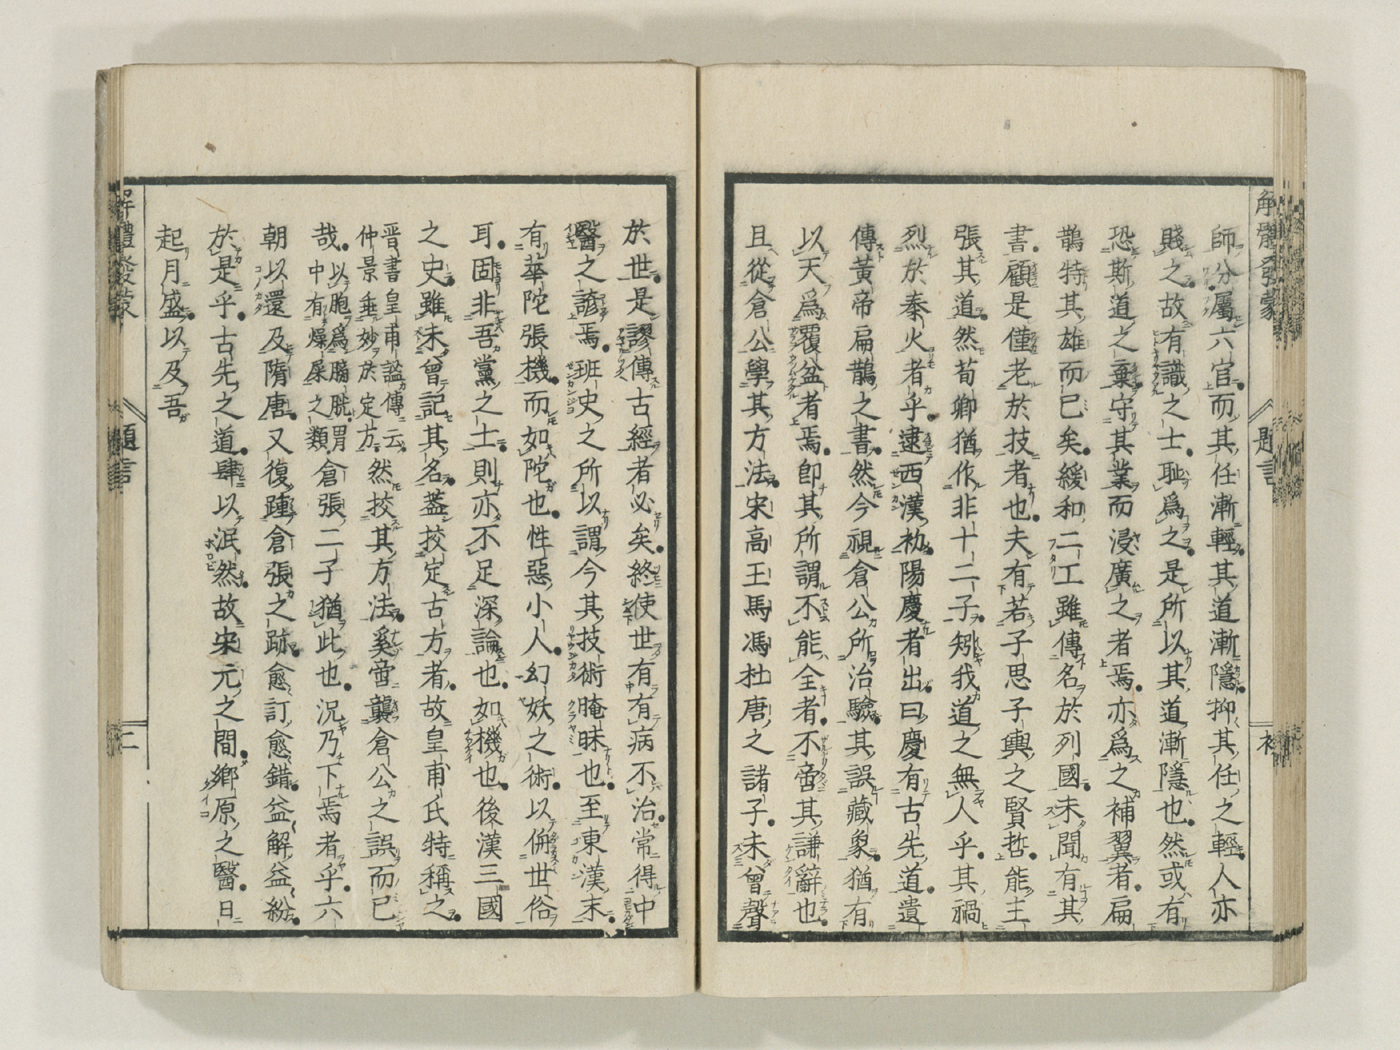 師分屬六官而其任漸輕其道漸隱抑其任之輕人亦
賤之故有識之士恥爲之是所以其道漸隱也然或有
恐斯道之棄守其業而浸廣之者焉亦爲之補翼者扁
鵲特其雄而已矣緩和二工雖傳名於列國未聞有其
書顧是僅老於技者也夫有若子思子輿之賢哲能主
張其道然荀卿猶作非十二子矧我道之無人乎其禍
烈於秦火者乎逮西漢初陽慶者出曰慶有古先道遺
傳黃帝扁鵲之書然今視倉公所治驗其誤藏象猶有
以天爲覆盆者焉卽其所謂不能全者不啻其謙辭也
且從倉公學其方法宋高王馬馮杜唐之諸子未曾聲
解體發蒙
題言
於世是謬傳古經者必矣終使世有有病不治常得中
醫之諺焉班史之所以謂今其技術晻昧也至東漢末
有華陀張機而如陀也性惡小人幻妖之術以倂世俗
耳固非吾黨之士則亦不足深論也如機也後漢三國
之史雖未曾記其名蓋挍定古方者故皇甫氏特稱之
晋書皇甫謐傳云
仲景垂妙於定方
然挍其方法奚啻襲倉公之誤而已
哉
以胞爲腸胱胃
中有燥屎之類
倉張二子猶此也況乃下焉者乎六
朝以還及隋唐又復踵倉張之跡愈訂愈錯益解益紛
於是乎古先之道肆以泯然故宋元之間鄉原之醫日
起月盛以及吾
解體發蒙
題言
二